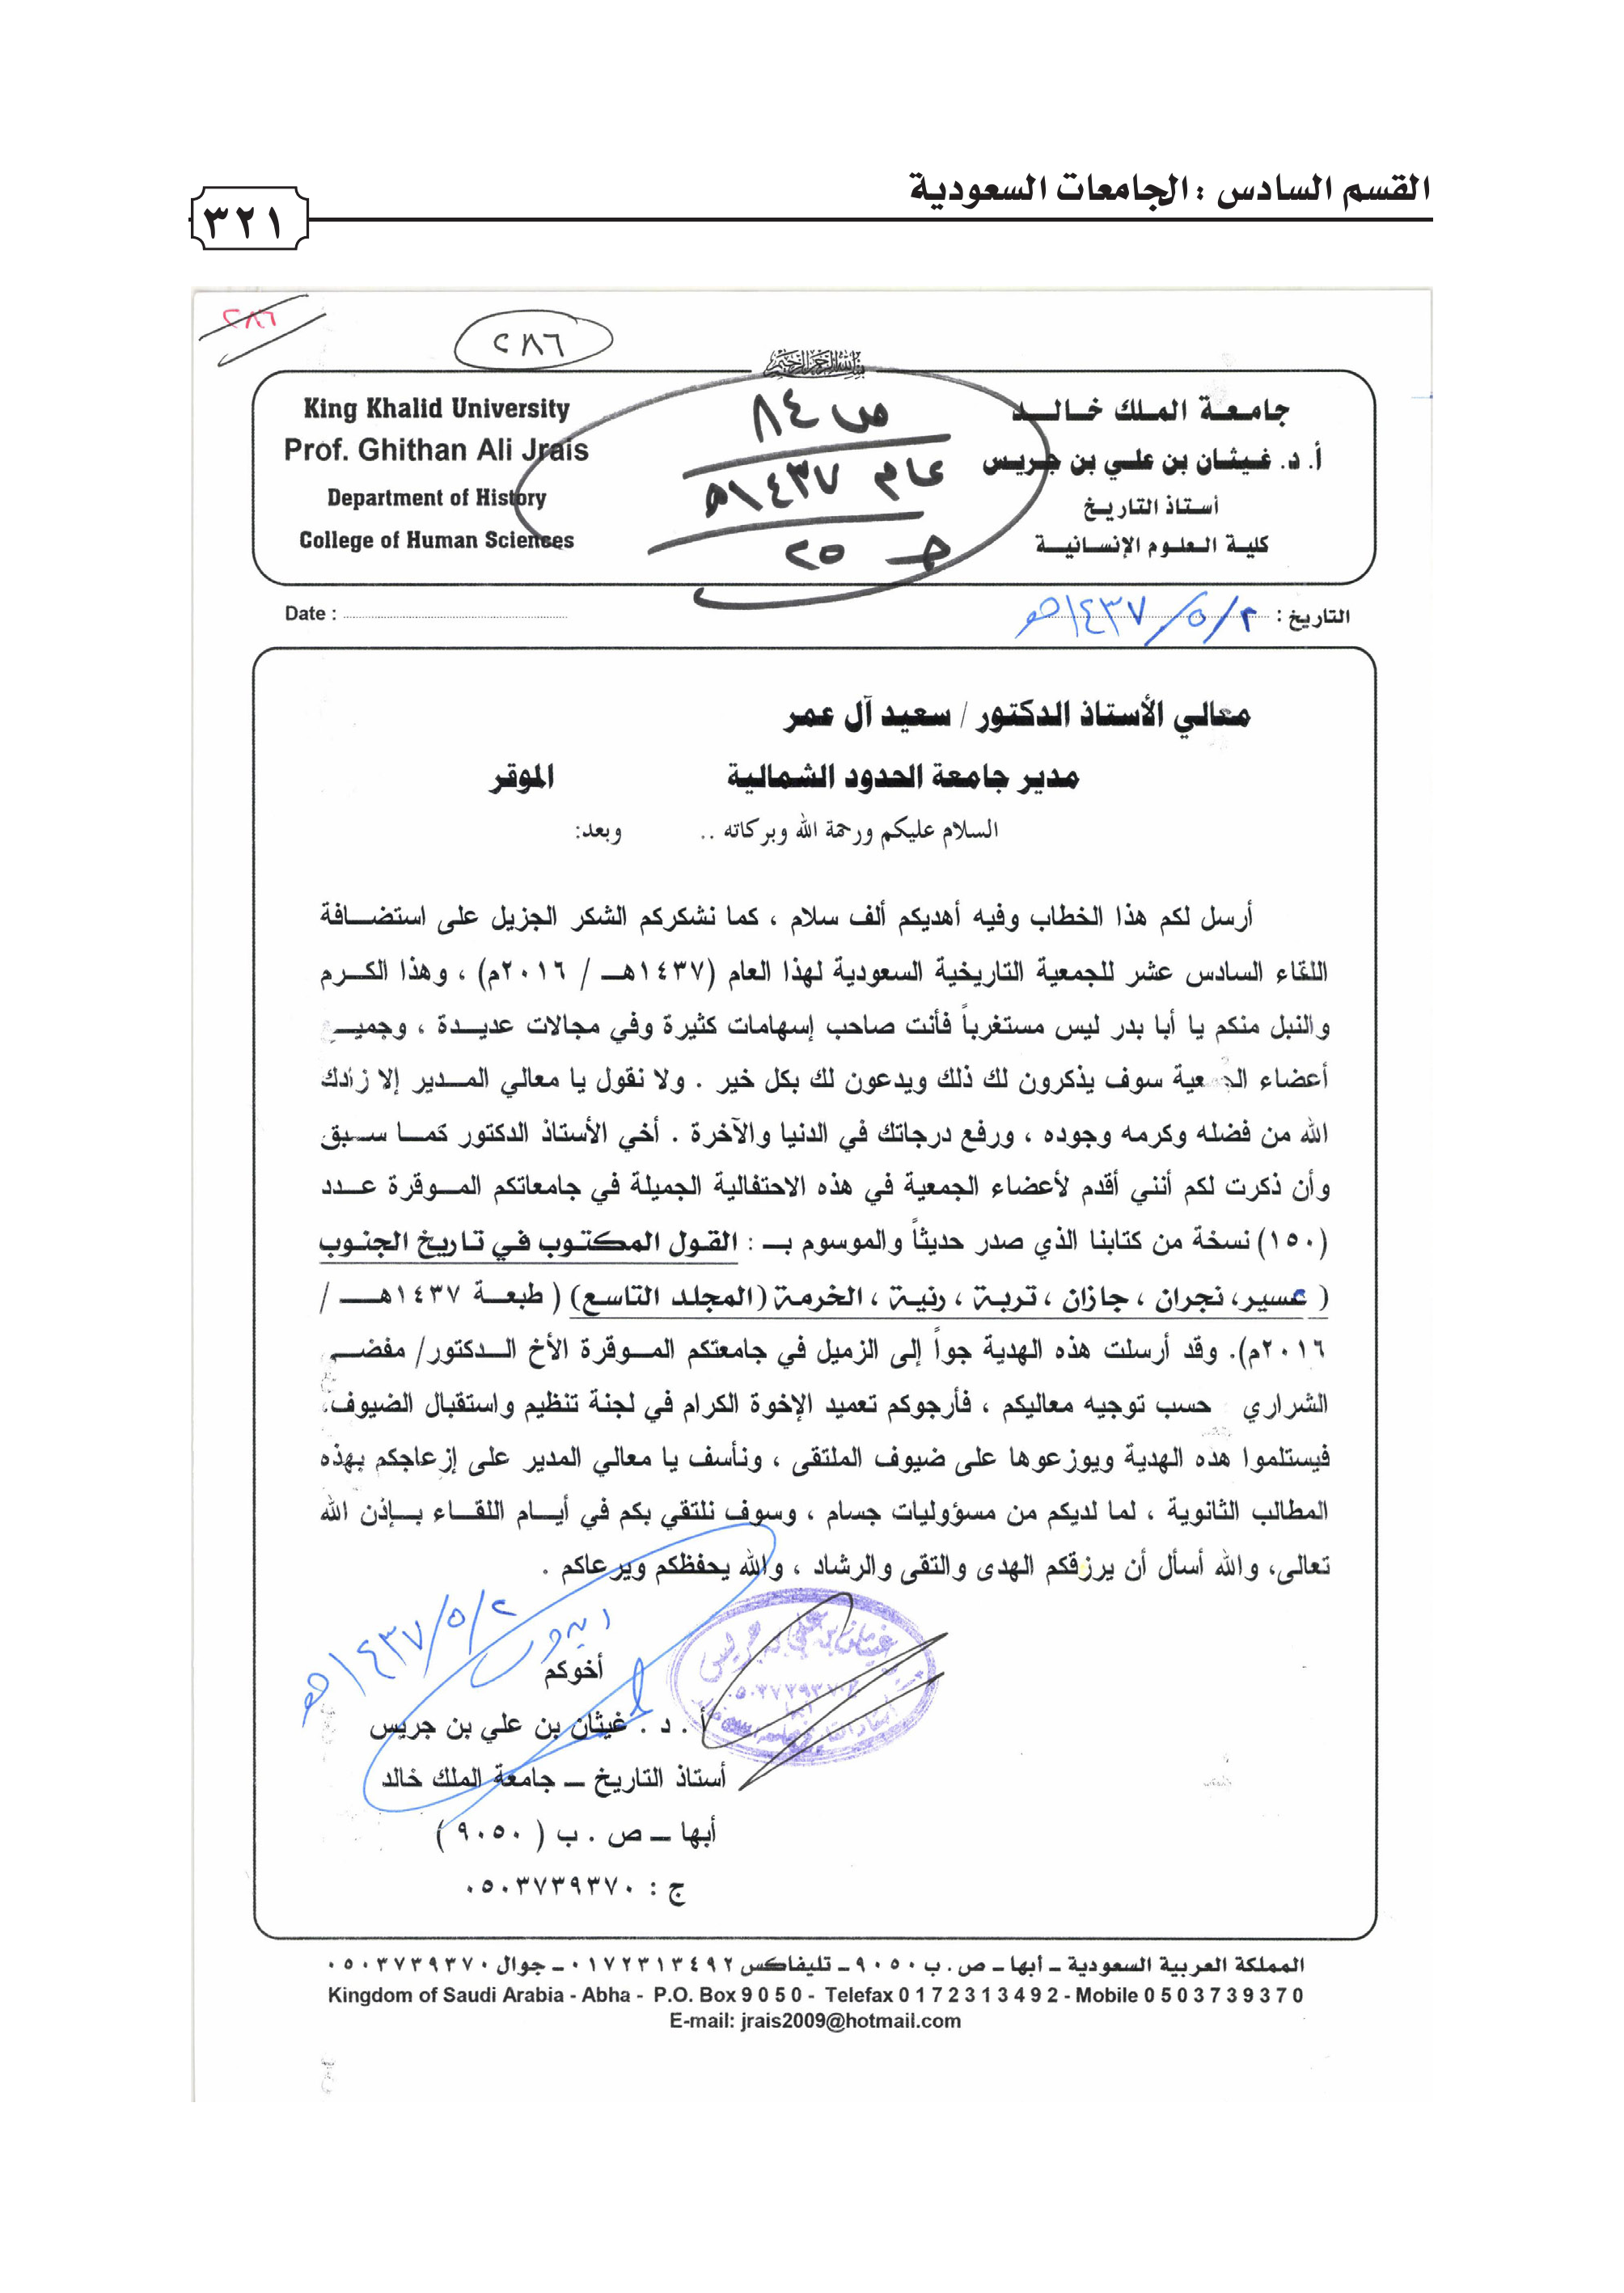 القسم السادس : الجامعات السعودية
٣٢١
٢٨٦
٢٨٦
بسم الله الرحمن الرحيم
King Khalid University
Prof. Ghithan Ali Jrais
Department of History
College of Human Sciences
ص ٨٤
عام ١٤٣٧هـ
جـ ٢٥
جامعة الملك خالد
أ. د. غيثان بن علي بن جريس
أستاذ التاريخ
كلية العلوم الإنسانية
Date :
التاريخ : ٢/ ٥/ ١٤٣٧هـ
معالي الأستاذ الدكتور / سعيد آل عمر
مدير جامعة الحدود الشمالية الموقر
السلام عليكم ورحمة الله وبركاته .. وبعد:
أرسل لكم هذا الخطاب وفيه أهديكم ألف سلام ، كما نشكركم الشكر الجزيل على استضافة
اللقاء السادس عشر للجمعية التاريخية السعودية لهذا العام (١٤٣٧هـ / ٢٠١٦م) ، وهذا الكرم
والنبل منكم يا أبا بدر ليس مستغرباً فأنت صاحب إسهامات كثيرة وفي مجالات عديدة ، وجميع
أعضاء الجمعية سوف يذكرون لك ذلك ويدعون لك بكل خير . ولا نقول يا معالي المدير إلا زادك
الله من فضله وكرمه وجوده ، ورفع درجاتك في الدنيا والآخرة . أخي الأستاذ الدكتور كما سبق
وأن ذكرت لكم أنني أقدم لأعضاء الجمعية في هذه الاحتفالية الجميلة في جامعاتكم الموقرة عدد
(١٥٠) نسخة من كتابنا الذي صدر حديثاً والموسوم بـ : القول المكتوب في تاريخ الجنوب
( عسير، نجران ، جازان ، تربة ، رنية ، الخرمة (المجلد التاسع) ( طبعة ١٤٣٧هـ /
٢٠١٦م). وقد أرسلت هذه الهدية جواً إلى الزميل في جامعتكم الموقرة الأخ الدكتور/ مفضي
الشراري حسب توجيه معاليكم ، فأرجوكم تعميد الإخوة الكرام في لجنة تنظيم واستقبال الضيوف،
فيستلموا هذه الهدية ويوزعوها على ضيوف الملتقى ، ونأسف يا معالي المدير على إزعاجكم بهذه
المطالب الثانوية ، لما لديكم من مسؤوليات جسام ، وسوف نلتقي بكم في أيام اللقاء بإذن الله
تعالى، والله أسأل أن يرزقكم الهدى والتقى والرشاد ، والله يحفظكم ويرعاكم .
٢/ ٥/ ١٤٣٧هـ
غيثان بن علي بن جريس
أخوكم
أ . د . غيثان بن علي بن جريس
أستاذ التاريخ – جامعة الملك خالد
أبها – ص . ب ( ٩٠٥٠ )
ج : ٠٥٠٣٧٣٩٣٧٠
المملكة العربية السعودية – أبها – ص . ب ٩٠٥٠ – تليفاكس ٠١٧٢٣١٣٤٩٢ – جوال ٠٥٠٣٧٣٩٣٧٠
Kingdom of Saudi Arabia - Abha - P.O. Box 9 0 5 0 - Telefax 0 1 7 2 3 1 3 4 9 2 - Mobile 0 5 0 3 7 3 9 3 7 0
E-mail: jrais2009@hotmail.com